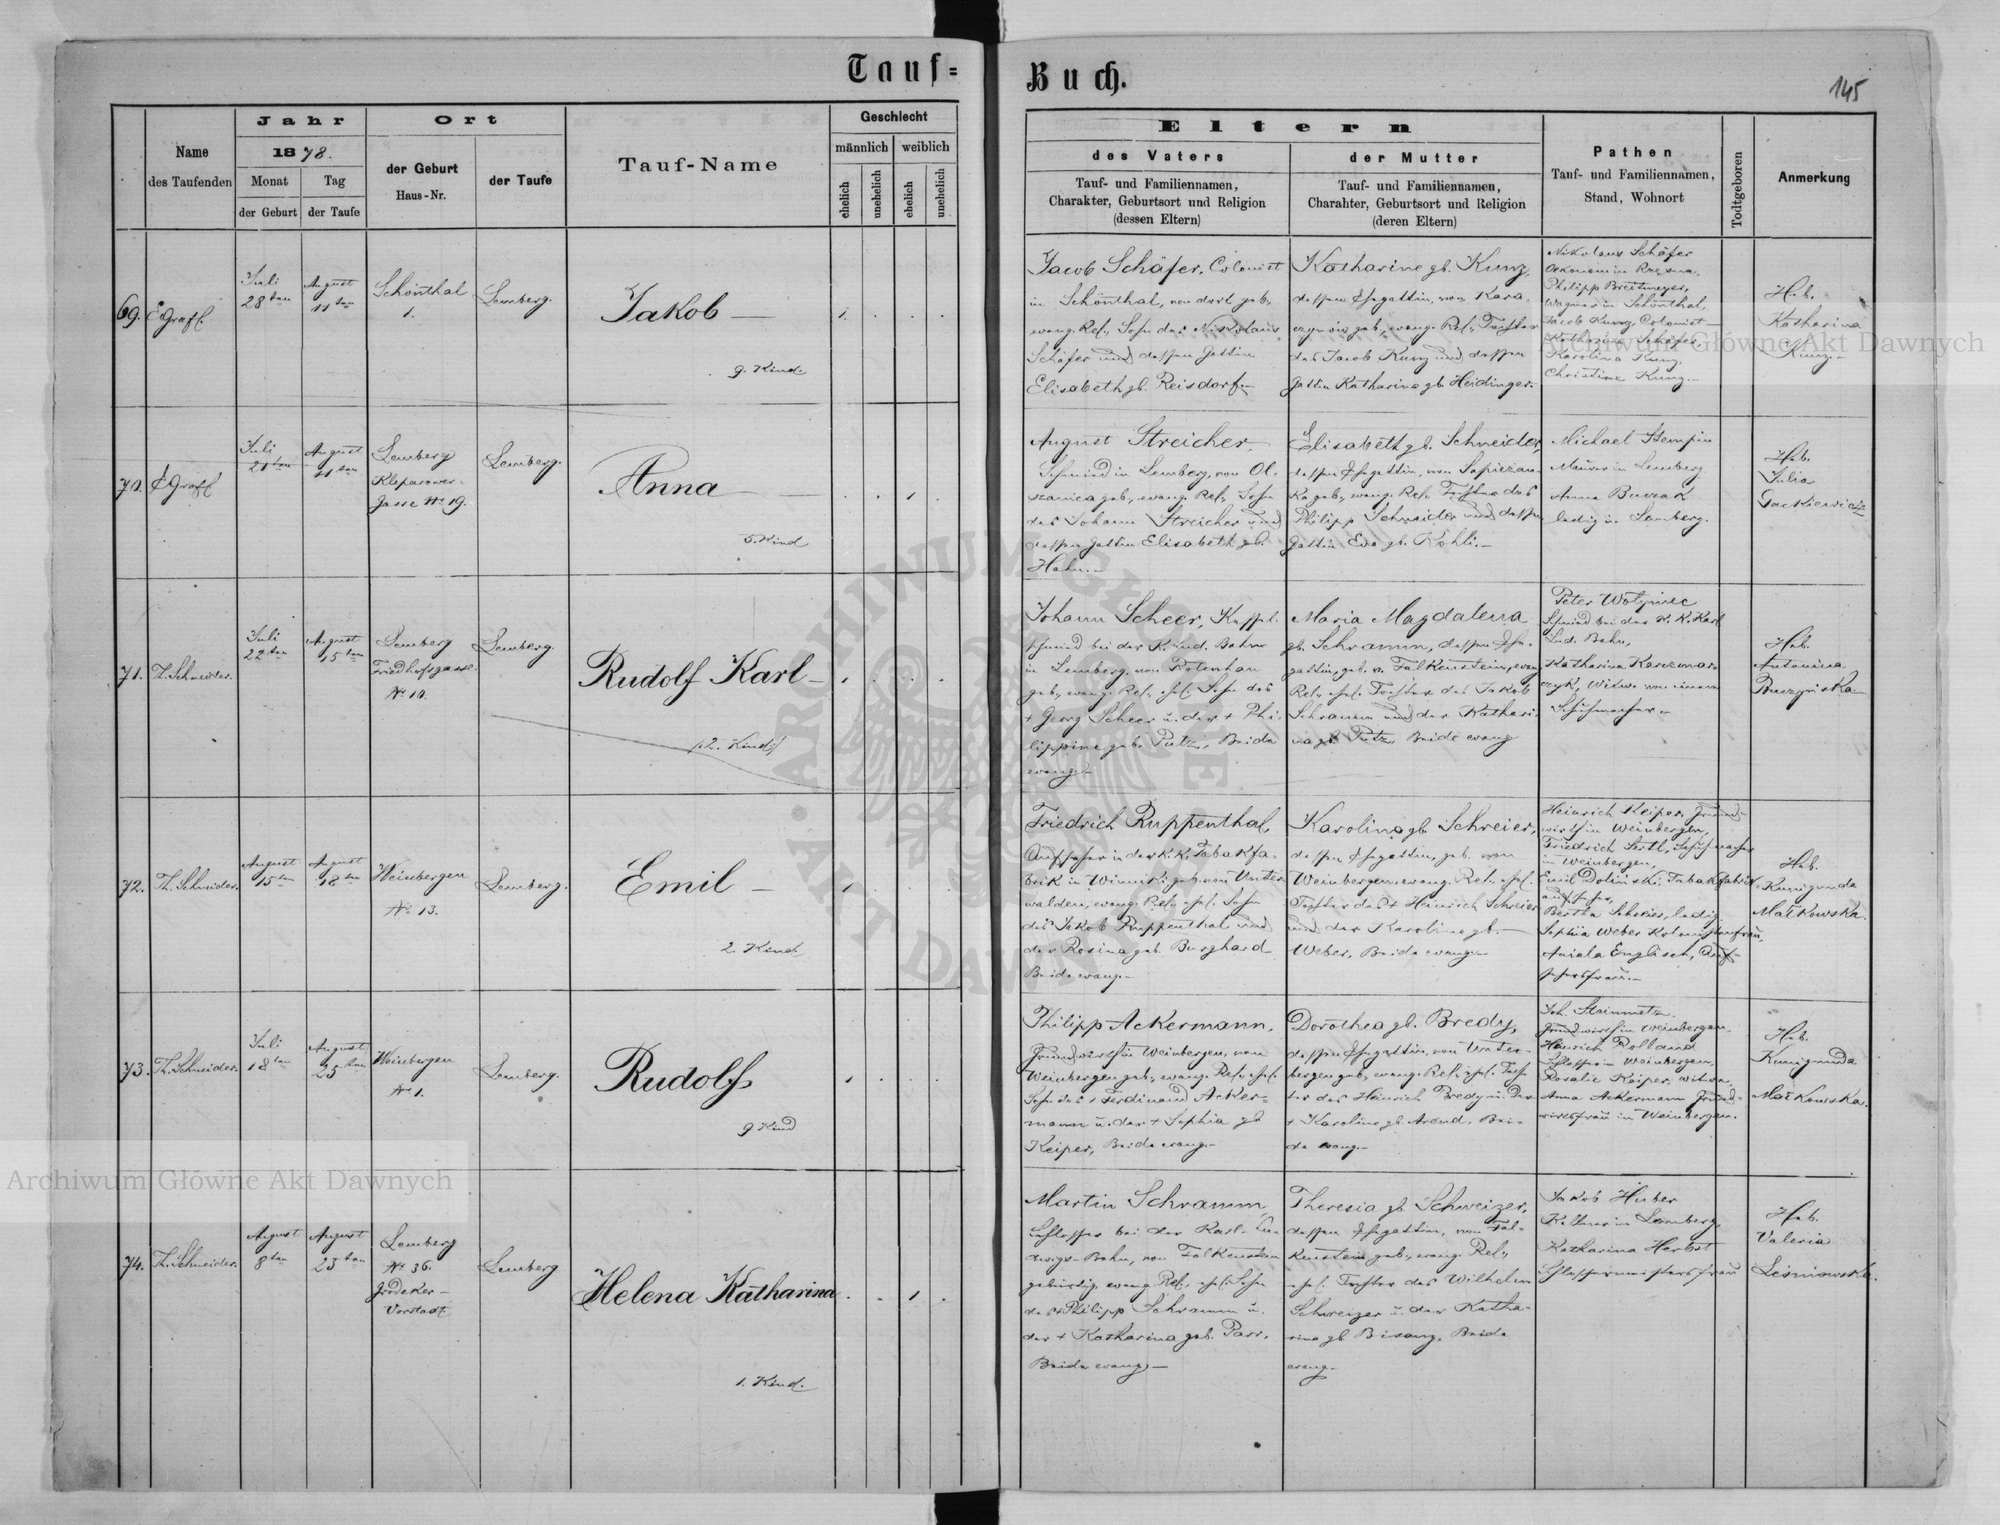 Tauf=
Buch.
145
Name
des Taufenden
Jahr
1878.
Monat
der Geburt
Tag
der Taufe
Ort
der Geburt
Haus-Nr.
der Taufe
Tauf-Name
Geschlecht
männlich
weiblich
ehelich
unehelich
ehelich
unehelich
Eltern
des Vaters
Tauf- und Familiennamen,
Charakter, Geburtsort und Religion
(dessen Eltern)
der Mutter
Tauf- und Familiennamen,
Charahter, Geburtsort und Religion
(deren Eltern)
Pathen
Tauf- und Familiennamen,
Stand, Wohnort
Todtgeboren
Anmerkung
69.
Juli
28ten
August
11ten
Schönthal
1.
Lemberg.
Jakob
9. Kind.
Jacob Schäfer, Colonist
in Schönthal, von dort geb.
evang. Ref., Sohn des Nikolaus
Schäfer und dessen Gattin
Elisabeth gb. Reisdorf.
Katharine gb. Kunz,
dessen Ehegattin, von
geb., evang. Ref. Tochter
des Jacob Kunz und dessen
Gattin Katharine gb. Heidinger.
Nikolaus Schäfer
Philipp Breitmeyer,
Wagner in Schönthal,
Jacob Kunz, Colonist
Katharina Schäfer,
Karolina Kunz,
Christine Kunz.
Heb.
Katharina
Kunz.
70.
Juli
21ten
August
11ten
Lemberg
Kleparower-
Gasse No 19.
Lemberg.
Anna
5. Kind
August Streicher,
Schmied in Lemberg, von
geb., evang. Ref., Sohn
des Johann Streicher und
dessen Gattin Elisabeth gb.
Hahn.
Elisabeth gb. Schneider,
dessen Ehegattin, von Sapiezan-
ka geb., evang. Ref. Tochter des
Philipp Schneider und dessen
Gattin Eva gb. Kohli.
Michael Stempin
Maurer in Lemberg.
Anna Buczak
ledig in Lemberg.
Heb.
Julia
71.
Th. Schneider.
Juli
22ten
August
15ten
Lemberg
Friedhofsgasse.
No 10.
Lemberg.
Rudolf Karl
2. Kind
Johann Scheer,
schmied bei der K. Lud. Bahn
in Lemberg, von Rotenhan
geb., evang. Ref., ehel. Sohn des
+ Georg Scheer u. der + Phi-
lippine geb. Putz. Beide
evang.
Maria Magdalena
gb. Schramm, dessen Ehe-
gattin, geb. v. Falkenstein, evang.
Ref., ehel. Tochter des Jakob
Schramm und der Kathari-
na gb. Putz. Beide evang
Peter Wołyniec
Schmied bei der K. K. Karl
Lud. Bahn,
Katharina
Witwe von einem
Schuhmacher.
Heb.
Antonina
72.
Th. Schneider.
August
15ten
August
18ten
Weinbergen
No 13.
Lemberg.
Emil
2. Kind
Friedrich Ruppenthal,
Aufseher in der k. k. Tabakfa-
brik in Winniki, geb. von Unter
walden, evang. Ref., ehel. Sohn
des Jakob Ruppenthal und
der Rosina geb. Burghard
Beide evang.
Karolina gb. Schreier,
dessen Ehegattin, geb. von
Weinbergen, evang. Ref., ehel.
Tochter des + Heinrich Schreier
und der Karoline gb.
Weber, Beide evang.
Heinrich Keiper, Grund-
wirth in Weinbergen,
Friedrich Sertl, Schuhmacher
in Weinbergen,
Emil Doliński, Tabakfabrik
aufseher,
Bertha Schreier, ledig
Sophia Weber Kolonistenfrau,
Aniela Englisch, Auf-
sehersfrau.
Heb.
Kunigunda
Małkowska.
73.
Th. Schneider.
Juli
18ten
August
25ten
Weinbergen
No 1.
Lemberg.
Rudolf
9 Kind
Philipp Ackermann,
Grundwirth in Weinbergen, von
Weinbergen geb., evang. Ref., ehel.
Sohn des + Ferdinand Acker-
mann u. der + Sophia gb
Keiper, Beide evang.
Dorothea gb. Bredy,
dessen Ehegattin, von Unter-
bergen geb., evang. Ref., ehel. Toch
ter des Heinrich Bredy u. der
+ Karoline gb Arend. Bei-
de evang.
Joh. Steinmetz
Grundwirth in Weinbergen.
Heinrich Rolland
Schlosser in Weinbergen,
Rosalie Keiper, witwe,
Anna Ackermann Grund-
wirthsfrau in Weinbergen.
Heb.
Kunigunda
Małkowska.
74.
Th. Schneider.
August
8ten
August
25ten
Lemberg
No 36.
Grodeker-
Vorstadt
Lemberg
Helena Katharina
1. Kind.
Martin Schramm,
Schlosser bei der Karl-Lu-
dwigs-Bahn, von Falkenstein
gebürtig, evang. Ref., ehel. Sohn
des + Philipp Schramm u.
der + Katharina geb. Parr.
Beide evang.
Theresia gb Schweizer,
dessen Ehegattin, von Fal-
kenstein geb., evang. Ref.,
ehel. Tochter des Wilhelm
Schweizer u. der Katha-
rina gb Bisang. Beide
evang.
Jakob Huber
Kellner in Lemberg,
Katharina Herbst
Schlossermeistersfrau
Heb.
Valeria
Leśniowska.
Archiwum Główne Akt Dawnych
Archiwum Główne Akt Dawnych
ARCHIWUM GŁÓWNE · AKT DAWNYCH ·